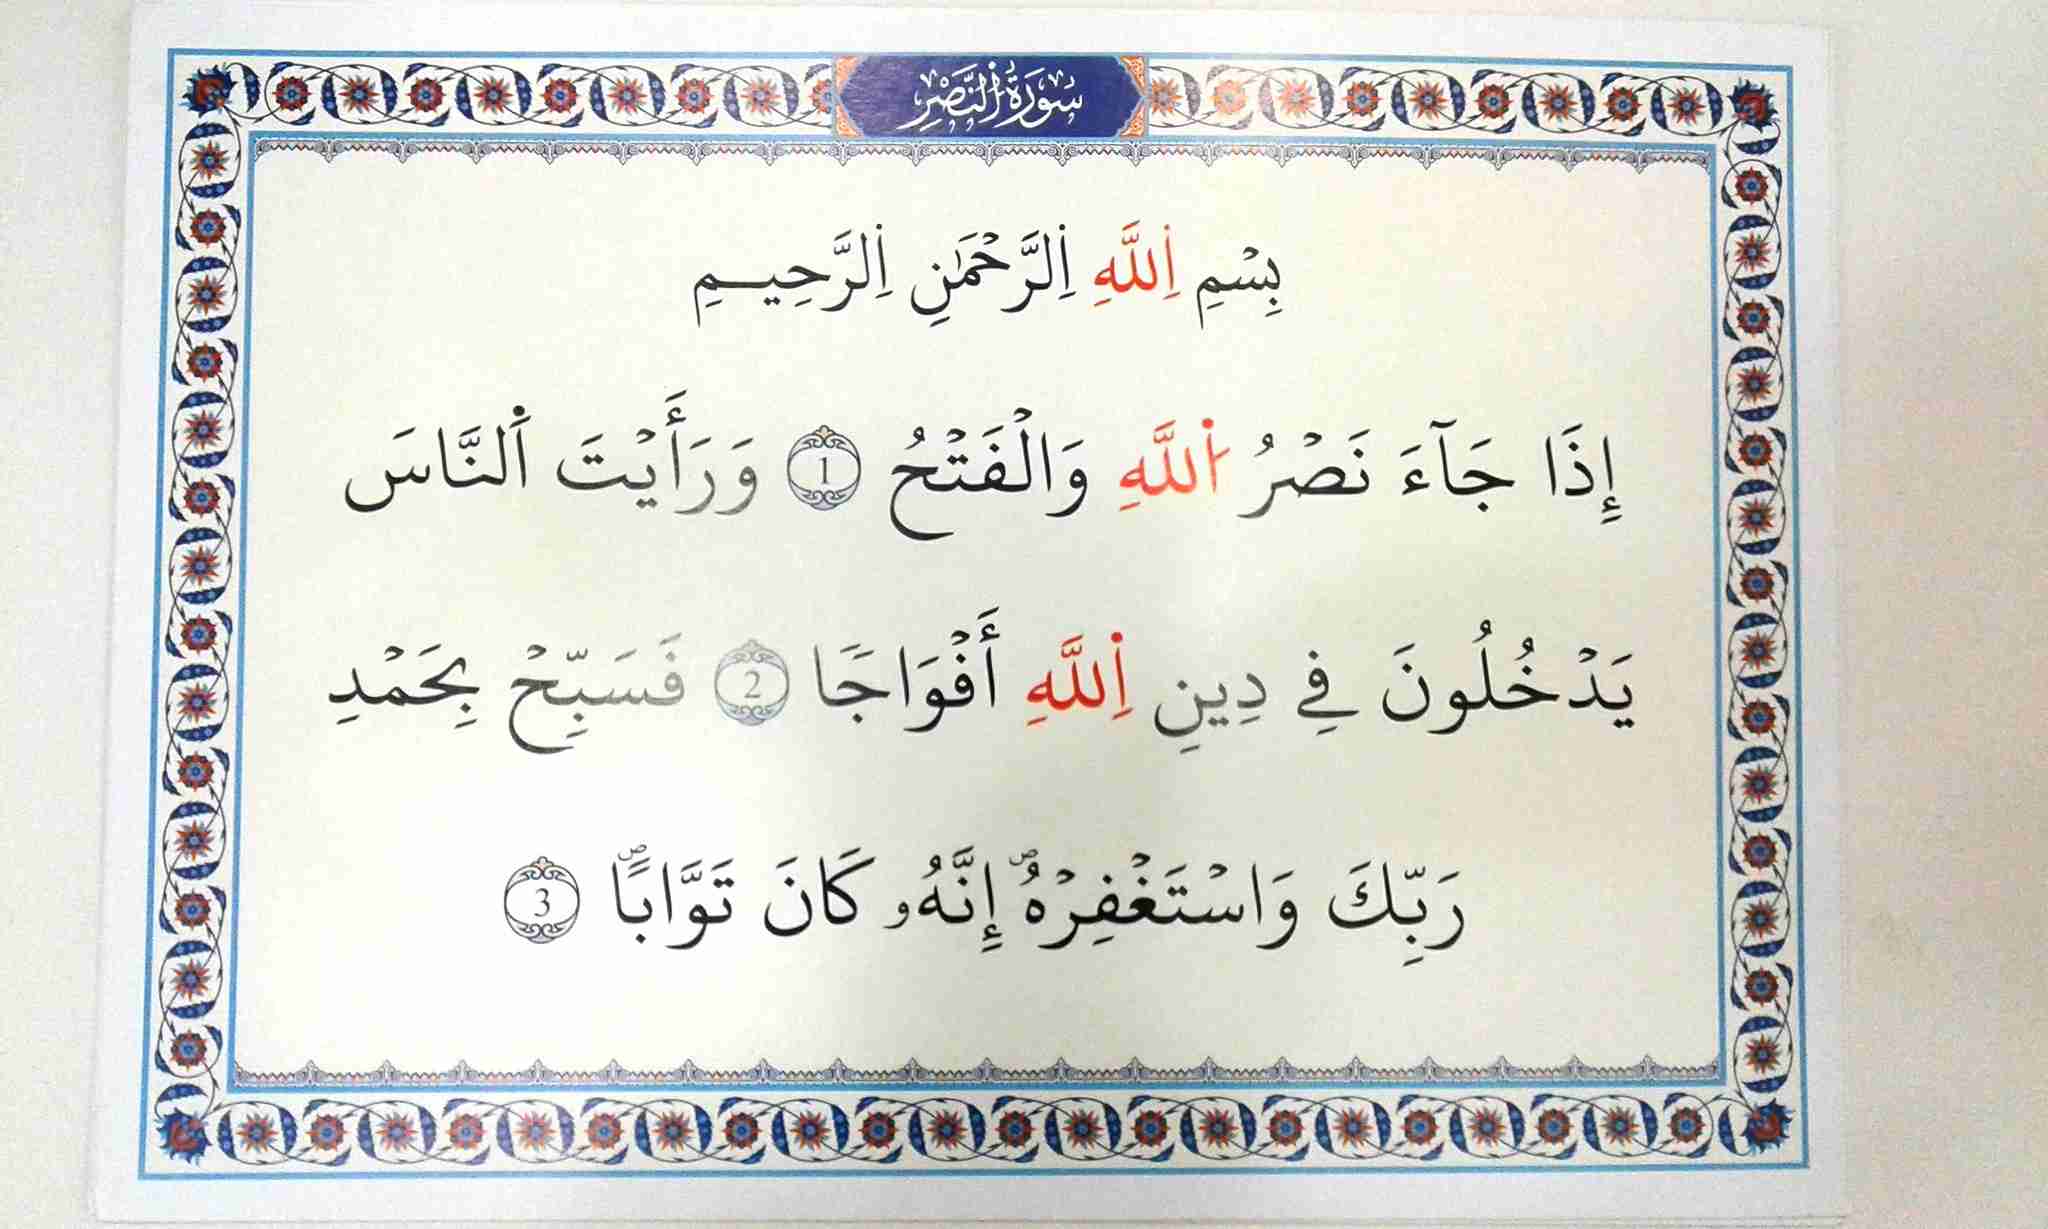 سُورَةُ النَّصْرِ
بِسْمِ اِ۬للَّهِ اِ۬لرَّحْمَٰنِ اِ۬لرَّحِيــمِ
إِذَا جَآءَ نَصْرُ اُ۬للَّهِ وَالْفَتْحُ 1 وَرَأَيْتَ اَ۬لنَّاسَ
يَدْخُلُونَ فِي دِينِ اِ۬للَّهِ أَفْوَاجًا 2 فَسَبِّحْ بِحَمْدِ
رَبِّكَ وَاسْتَغْفِرْهُۖ إِنَّهُۥ كَانَ تَوَّابًاۖ 3